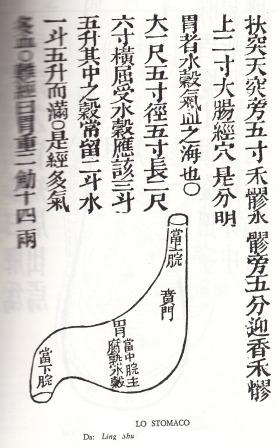 扶突天突旁五寸禾髎水髎旁五分迎香禾髎
上二寸大腸經穴是分明
胃者水穀氣血之海也○
大一尺五寸徑五寸長二尺
六寸橫屈受水穀應該三斗
五升其中之穀常留二斗水
一斗五升而滿○是經多氣
多血○難經曰胃重二觔十四兩
當上脘
賁門
胃
當中脘主
腐熟水穀
當下脘
LO STOMACO
Da: Ling Shu